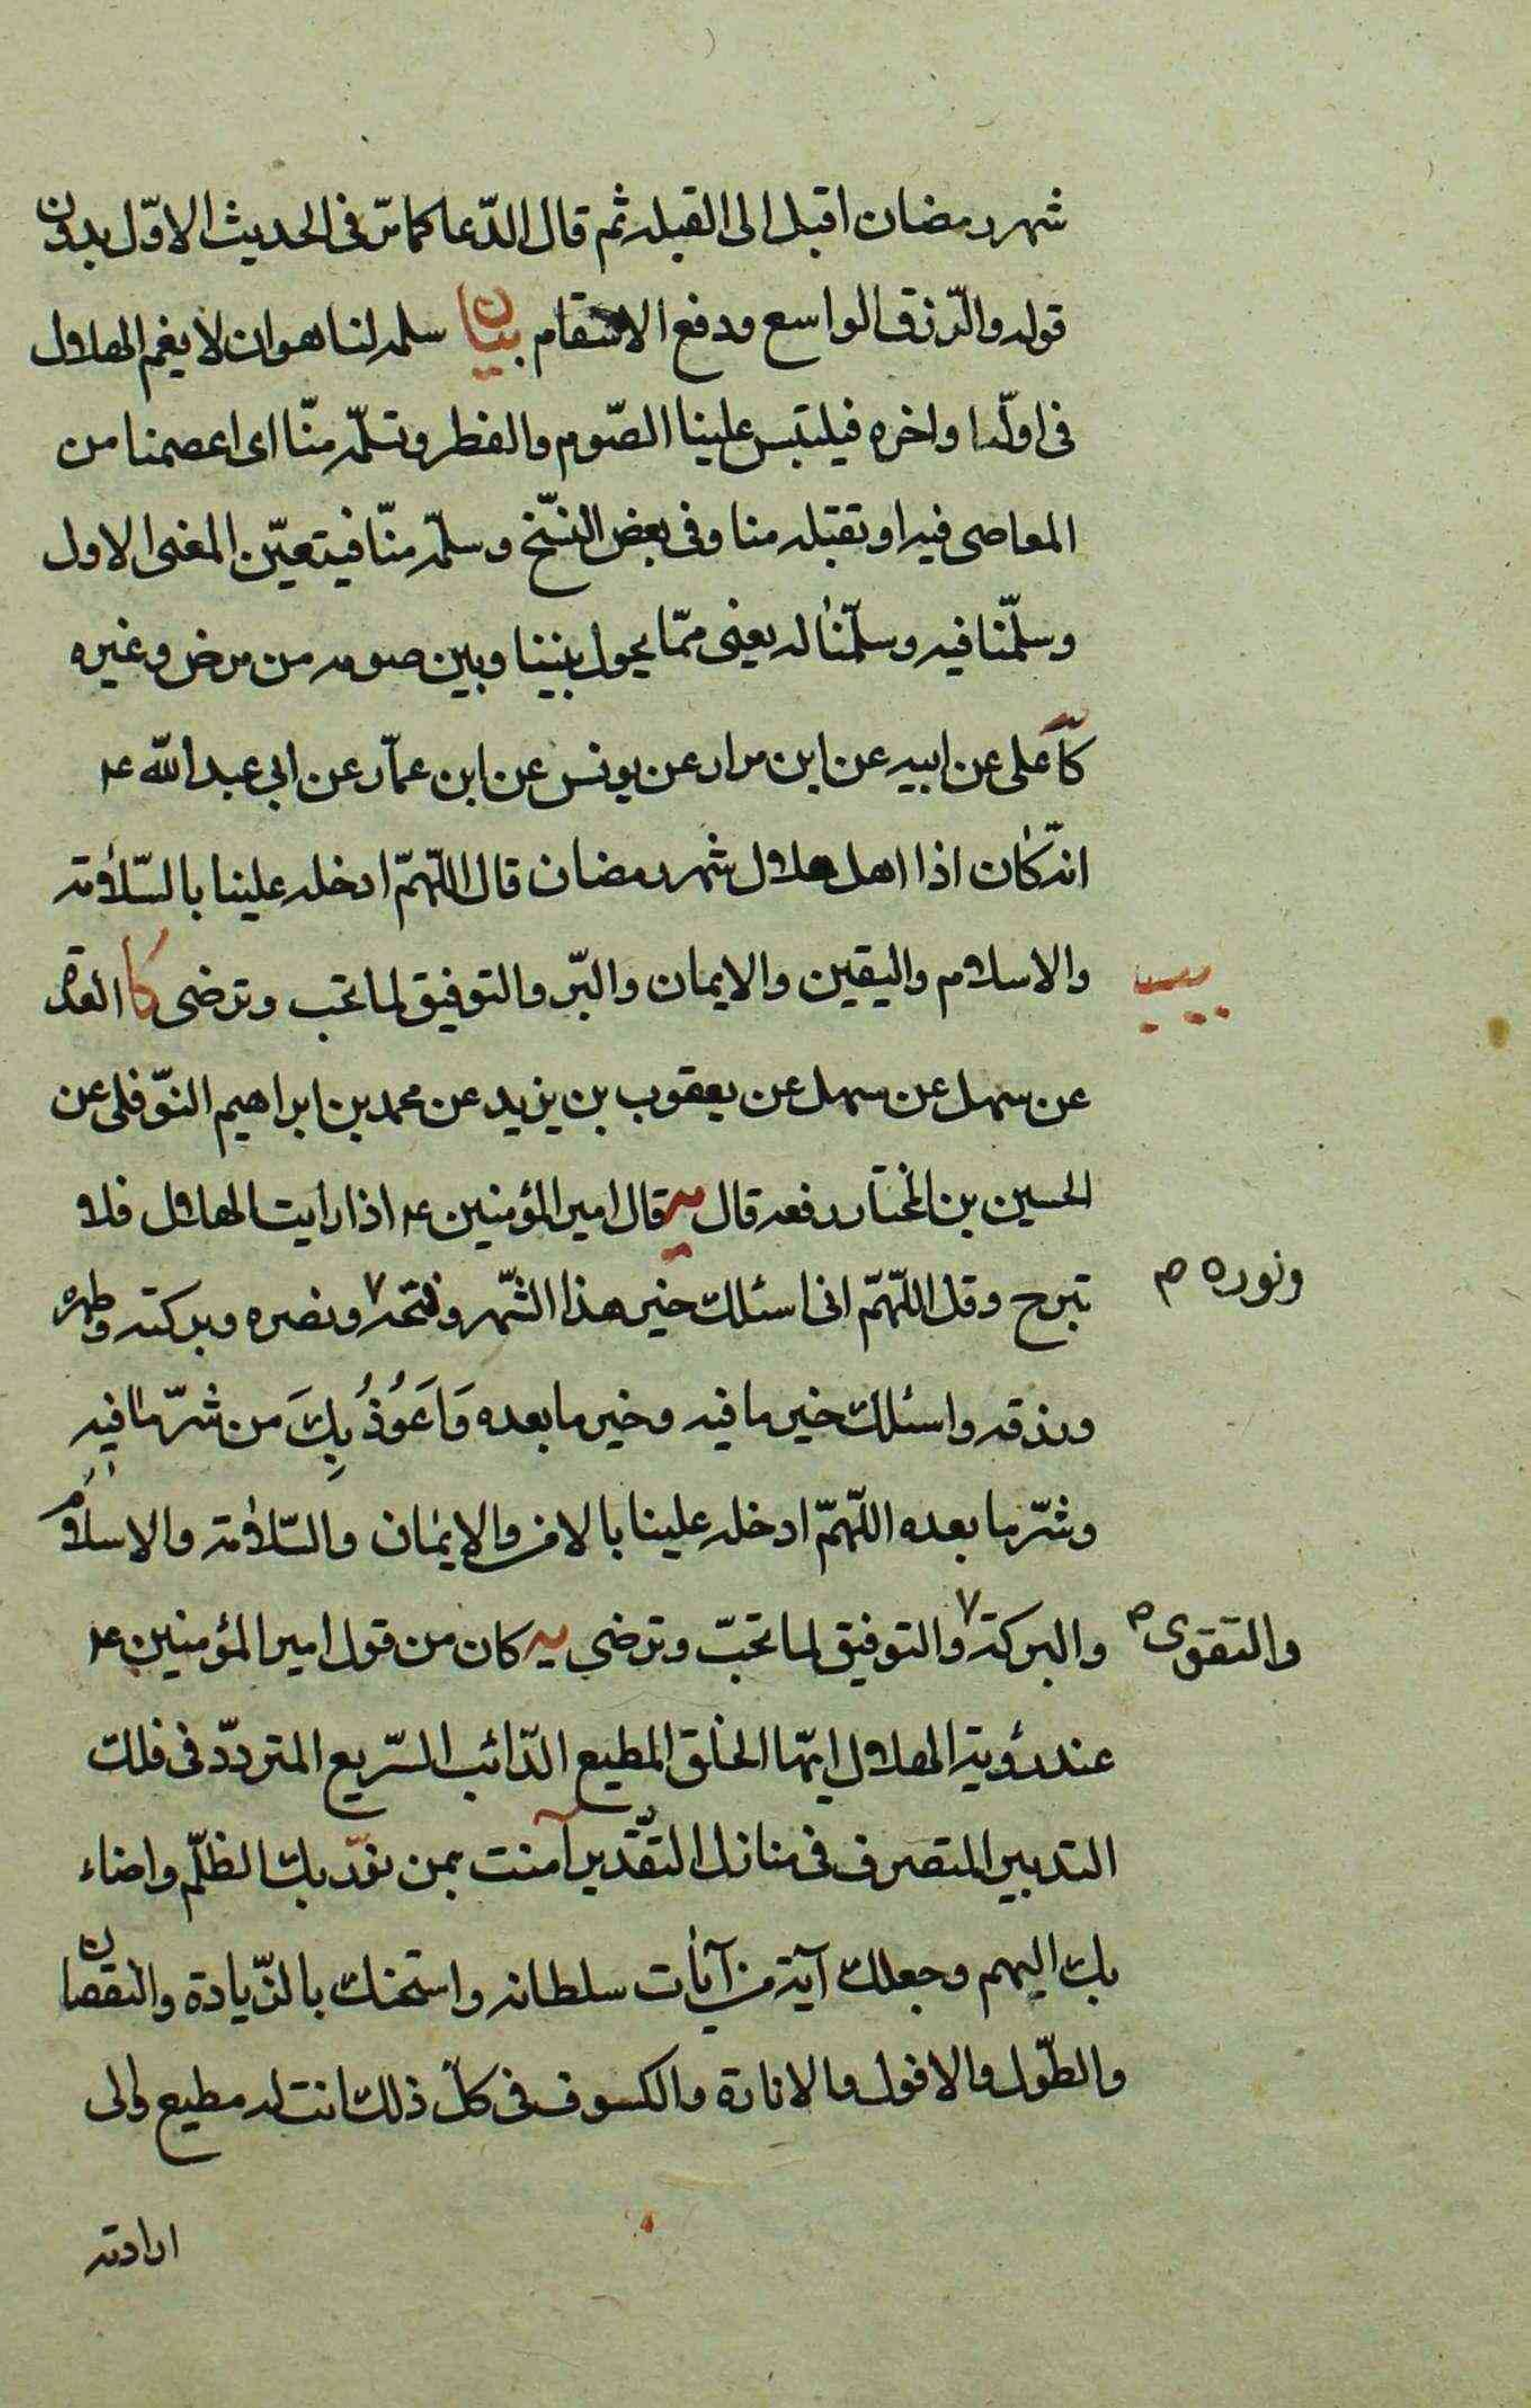 شهر رمضان اقبل الى القبله ثم قال الدّعا كما مرّ فى الحديث الاوّل بدون
قوله والرّزق الواسع ودفع الاسقام بيان سلمه لنا هو ان لا يغم الهلال
فى اوله او اخره فيلتبس علينا الصّوم والفطر وتسلّمه منّا اى اعصمنا من
المعاصى فيه او تقبله منا وفى بعض النسّخ وسلّمه منّا فيتعيّن المعنى الاول
وسلّمنا فيه وسلّمنا له يعنى ممّا يحول بيننا وبين صومه من مرض وغيره
كا على عن ابيه عن ابن مرار عن يونس عن ابن عمّار عن ابى عبد الله ع
انّه كان اذا اهل هلال شهر رمضان قال اللّهمّ ادخله علينا بالسّلامة
والاسلام واليقين والايمان والبّر والتوفيق لما تحب وترضى كا العدة
عن سهل عن سهل عن يعقوب بن يزيد عن محمد بن ابراهيم النّوفلى عن
الحسين بن المختار رفعه قال يه قال امير المؤمنين ع اذا رايت الهلال فلا
تبرح وقل اللّهمّ انى اسئلك خير هذا الشّهر وفتحه ونصره وبركته وطهوره
ونوره ص
ورزقه واسئلك خير ما فيه وخير ما بعده وَاَعَوُذُ بِكَ من شرّ ما فيه
وشرّ ما بعده اللّهمّ ادخله علينا بالامن والايمان والسّلامة والاسلام
والبركة والتوفيق لما تحبّ وترضى يه كان من قول امير المؤمنين ع
والتقوى ص
عند رؤية الهلال ايّها الخلق المطيع الدّائب السّريع المتردّد فى فلك
التدبير المتصرف فى منازل التّقدير آمنت بمن نوّر بك الظلّم واضاء
بك البهم وجعلك آية من آيات سلطانه وامتحنك بالزّيادة والنقصان
والطّول والافول والانارة والكسوف فى كلّ ذلك انت له مطيع والى
ارادته